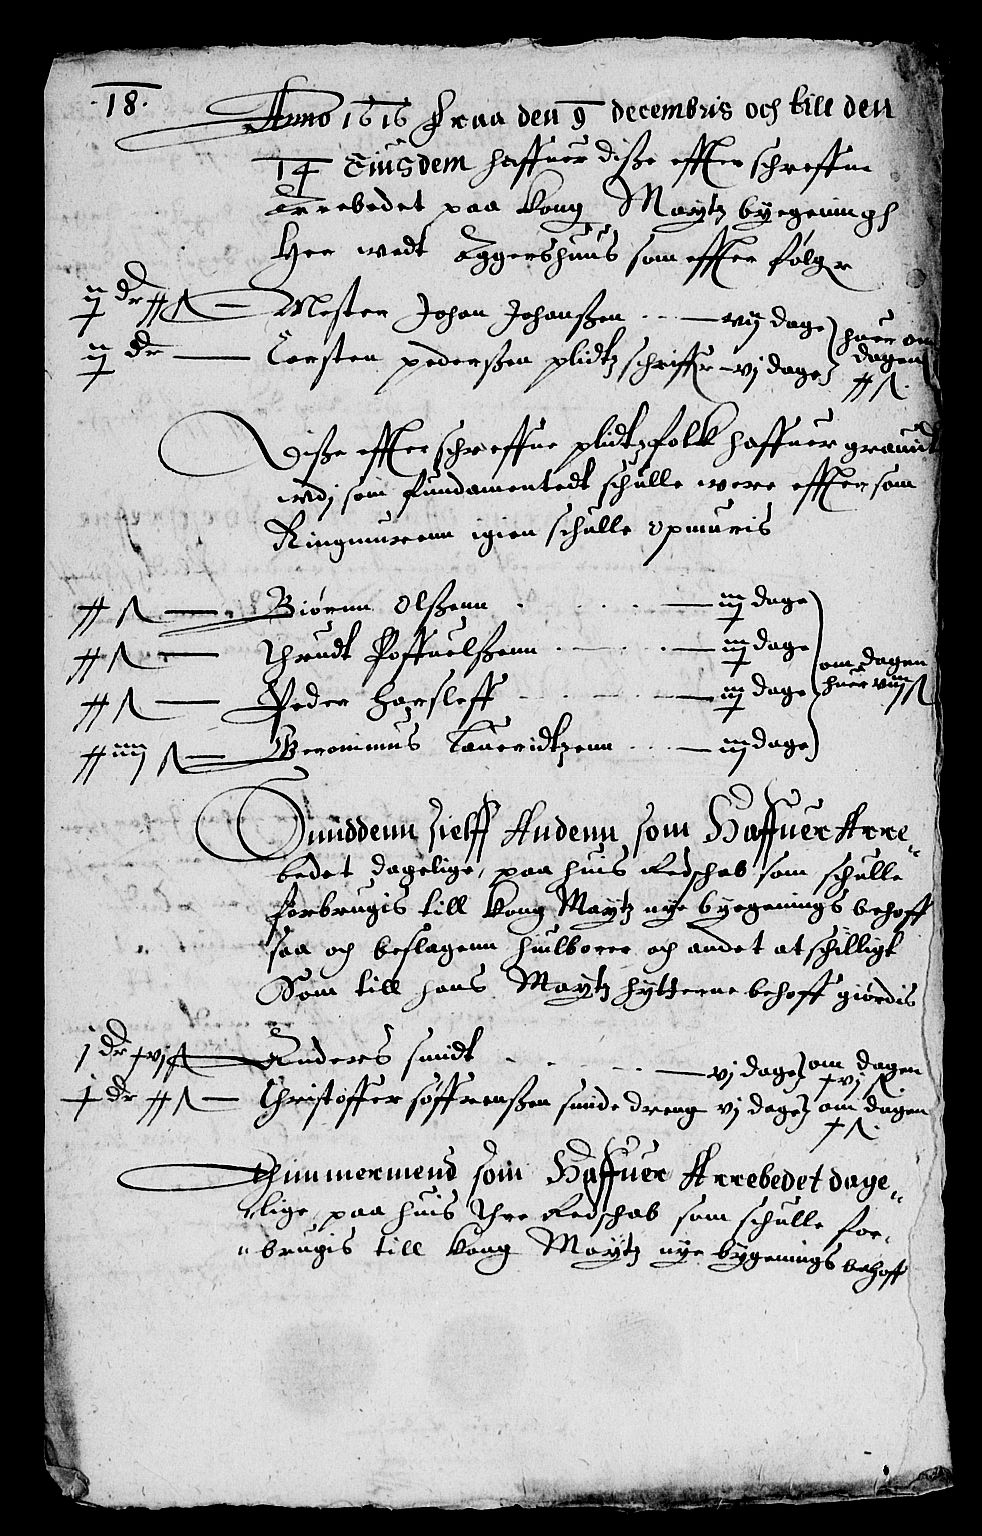 18.
Anno 1616 fraa den 9 decembris och till den
14 Eiusdem haffuer diße effter schreffne
Arrebedet paa Kong Maytz byegeningh
Her wedt Aggershuus som effter følger
Mester Johan Johanßen — vij dage } huer om
ij dr — Corsten pederßen plidtz schriffr — vj dage } dagen
Diße effter schreffne plidtzfolk haffuer grauit
udj som fundamentedt schulle were effter som
Ringmurenn igien schulle opmuris
Biörnn Olßenn — iij dage
Thrudt Poffuelßenn — iij dage } om dagen
Peder Harsleff — iij dage } huer viij ß
Geronimus Lauridtzenn — iij dage
Smiddenn sielff Andenn som Haffuer Arre„
bedet dagelige, paa huis Redschab som schulle
forbrugis till Kong Maytz nye byegenings behoff
saa och beslagenn hiulborer och andet atschilligt
Som till hans Maytz hytterne behoff giordis
j dr Anders smidt — vj dage } om dagen
Christoffer söffrenßen smide dreng vj dage } om dagen
Thimmermend som Haffuer Arrebedet dage„
„lige, paa huis Thre Redschab som schulle for„
„brugis till Kong Maytz nye bygenings behoff